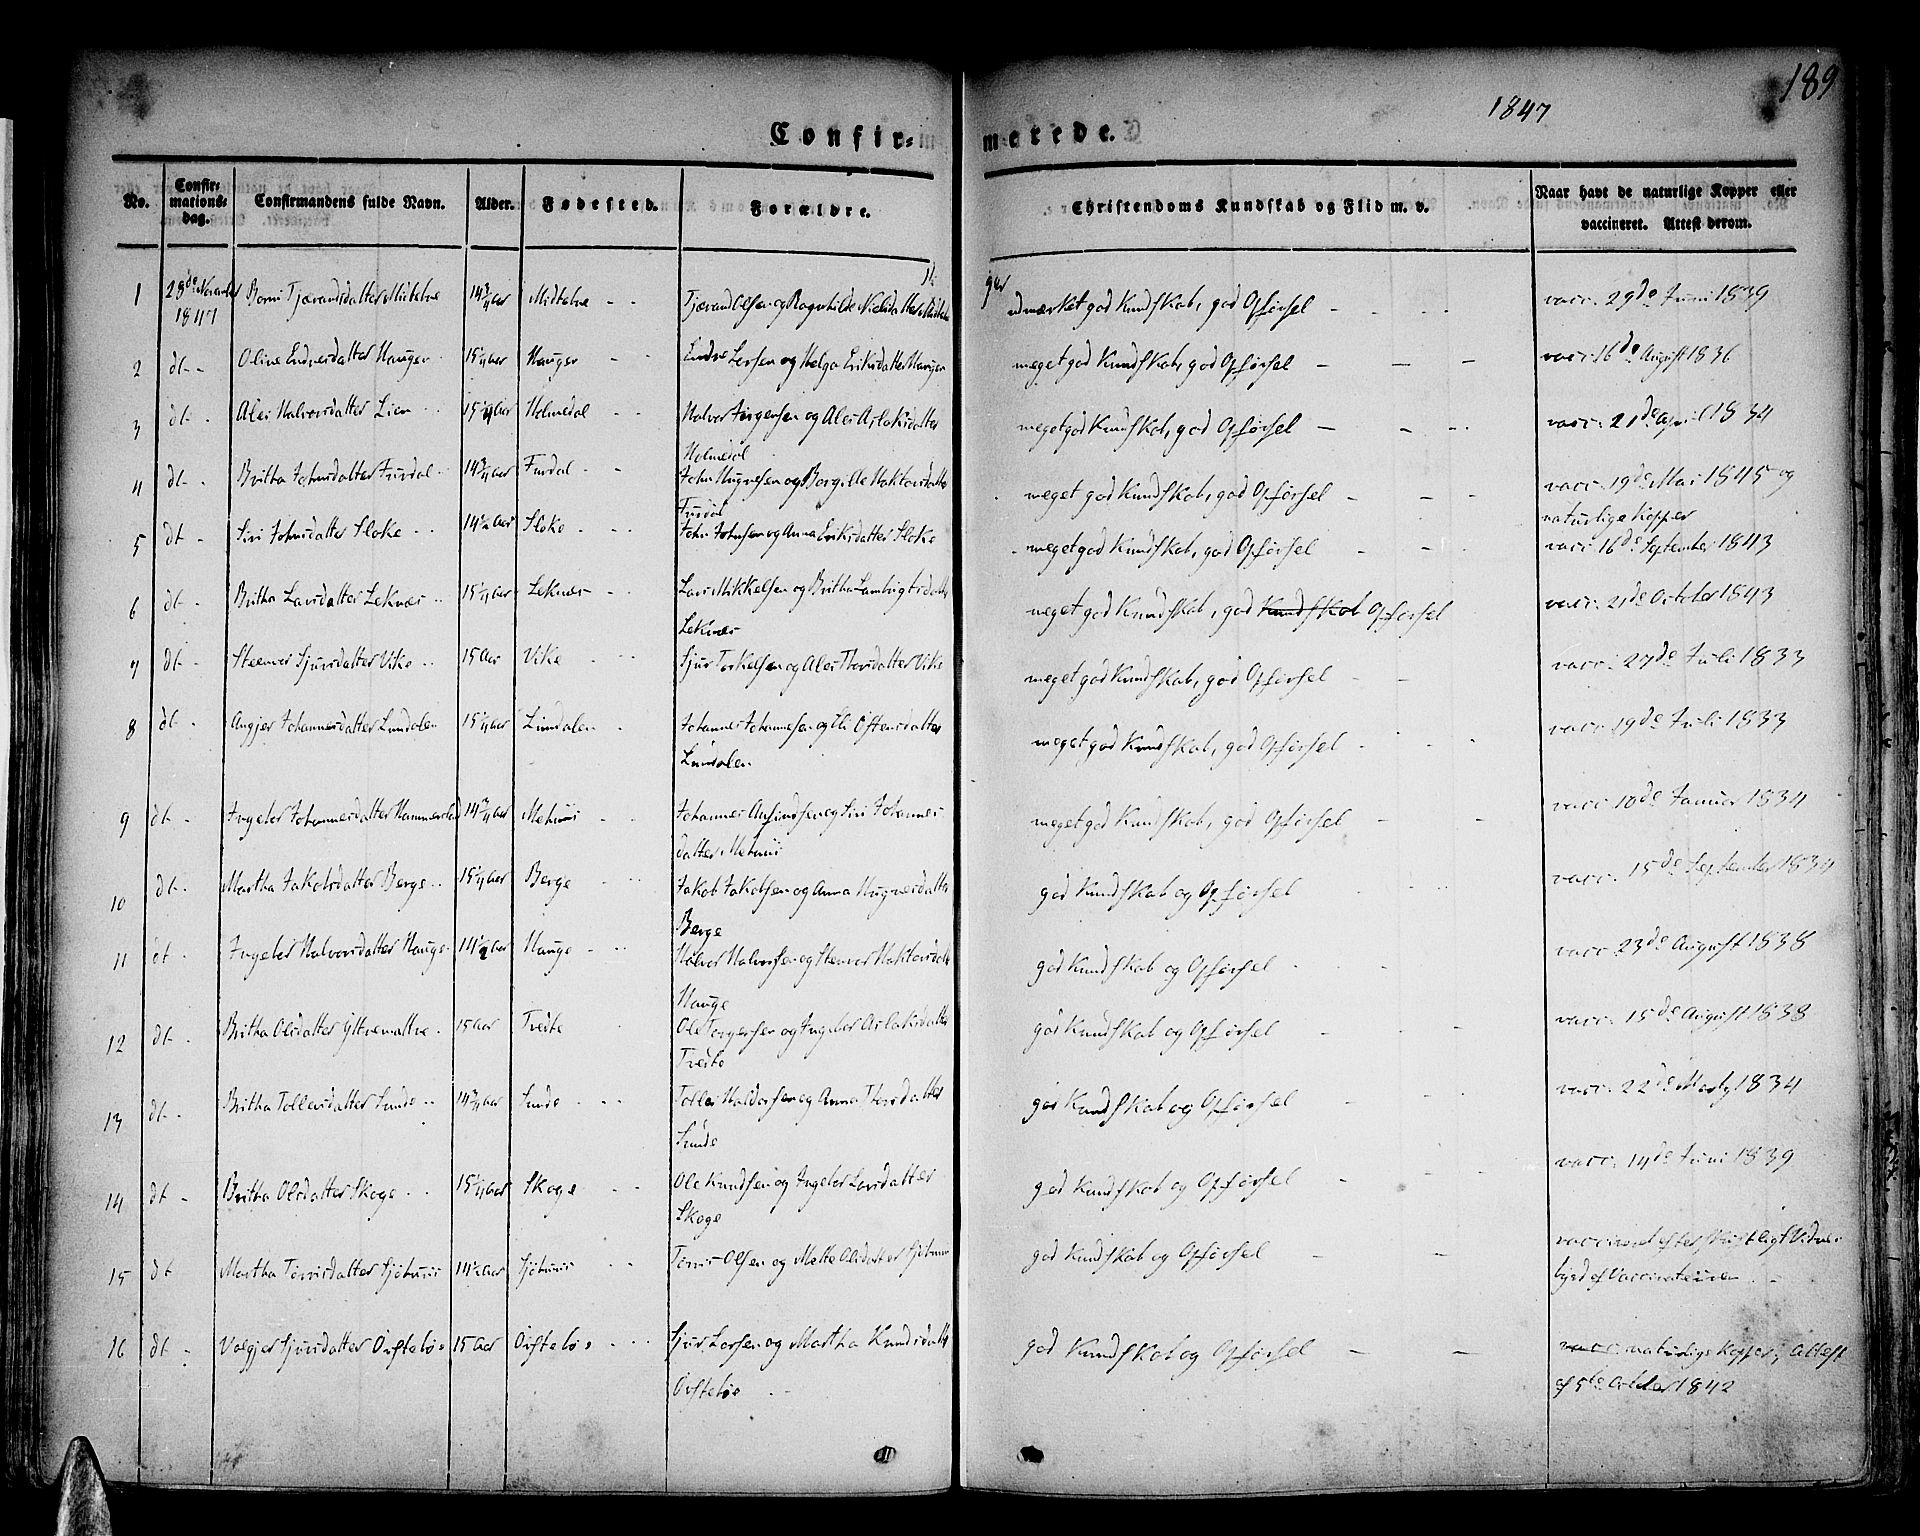 189
1847
Confir-
merede.
No.
Confir-
mations-
dag.
Confirmandens fulde Navn.
Alder.
Fødested.
Forældre.
Christendoms Kundskab og Flid m. v.
Naar havt de naturlige Kopper eller
vaccineret. Attest derom.
1 28de November 1847 Tjærandsdatter Midtehve 14¾ Aar Midtehve - - Tjærand Olsen og Ragnhilde Nielsdatter udmærket god Kundskab, god Opførsel - vacc. 29de Juni 1839
2 dt - Oline Endresdatter Hauger 15¼ Aar Hauger - - Endre Larsen og Helga Eriksdatter Hauger meget god Kundskab, god Opførsel - - - vacc. 16de August 1836
3 dt - Alei Halvorsdatter Lien - 15¼ Aar Holmedal - - Halvor Jørgensen og Alei Aslaksdatter
Holmedal meget god Kundskab, god Opførsel - - - vacc. 21de April 1834
4 dt - Britha Johnsdatter Furdal - 14¾ Aar Furdal - - John Hugnesen og Borgille Haktorsdatter
Furdal meget god Kundskab, god Opførsel - - - vacc. 19de Mai 1845 og
naturlige Kopper
5 dt - Siri Johnsdatter Sloke - - 14½ Aar Sloke - - John Johnsen og Anna Eriksdatter Sloke meget god Kundskab, god Opførsel - - - vacc. 16de September 1843
6 dt - Britha Larsdatter Leknes - 15¼ Aar Leknes - Lars Mikkelsen og Britha Lambrigtsdatter
Leknes meget god Kundskab, god Kundskab Opførsel vacc. 21de October 1843
7 dt - Steenvi Sjursdatter Vike - - 15 Aar Vike - - Sjur Torkelsen og Alei Thorsdatter Vike meget god Kundskab, god Opførsel - - vacc. 27de Juli 1833
8 dt - Angjer Johannesdatter Lundalen 15¼ Aar Lundalen - Johannes Johannesen og Eli Østensdatter
Lundalen meget god Kundskab, god Opførsel - - - vacc. 19de Juli 1833
9 dt - Ingebor Johannesdatter 14¾ Aar Mehuus - Johannes Anfindsen og Siri Johannes-
datter Mehuus meget god Kundskab, god Opførsel - - vacc. 10de Januar 1834
10 dt - Martha Jakobsdatter Berge - - 15¼ Aar Berge - - Jakob Jakobsen og Anna Hugnesdatter
Berge god Kundskab og Opførsel - - vacc. 15de September 1834
11 dt - Ingebor Halvorsdatter Hauge - 14½ Aar Hauge - - Halvor Halvorsen og Stenvor Haktorsdatter
Hauge god Kundskab og Opførsel - - vacc. 23de August 1838
12 dt - Britha Olsdatter Yttremattre - 15 Aar Tvedte Ole Torgersen og Ingebor Aslaksdatter
Tvedte god Kundskab og Opførsel - - vacc. 15de August 1838
13 dt - Britha Tolleisdatter Sunde - - 14¾ Aar Sunde - - Tollei Haldorsen og Anna Thorsdatter
Sunde god Kundskab og Opførsel - - vacc. 22de 1834
14 dt - Britha Olsdatter Skoge - - 15¼ Aar Skoge - - Ole Knudsen og Ingebor Larsdatter
Skoge god Kundskab og Opførsel - vacc. 14de Juni 1839
15 dt Martha Torrisdatter Sjøhuus 14½ Aar Sjøhuus - - Torris Olsen og Mette Olsdatter Sjøhuus god Kundskab og Opførsel - - vaccineret efter skriftligt Vidnes-
byrd af Vaccinateuren
16 dt - Valgjer Sjursdatter Øvstebø 15 Aar Øvstebø - - Sjur Larsen og Martha Knudsdatter
Øvstebø - - god Kundskab og Opførsel - - vacc. naturlige Kopper, Attest
af 5te October 1842